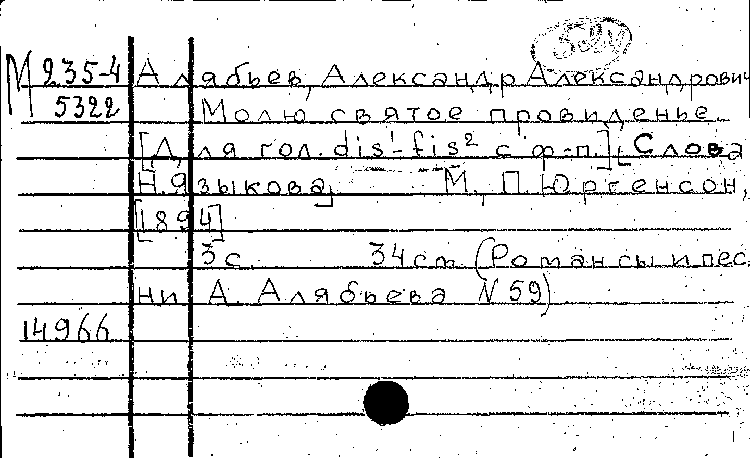 М 235-4 Алябьев, Александр Александрович
5322 Молю святое провиденье.
[Для гол. dis¹-fis² с ф-п.] [Слова
Н. Языкова] М., П. Юргенсон,
[1894]
3с. 34см (Романсы и пес
ни А. Алябьева N 59)
14966